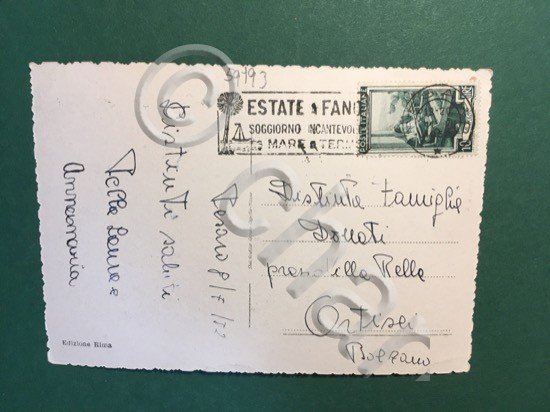 39193
ESTATE A FANO
SOGGIORNO INCANTEVOLE
MARE A TERM
Distinti saluti
Pella Laura e
Annamaria
Pesaro 8/7/52
Distinta Famiglia
Donati
presso Villa Pelle
Ortisei
Bolzano
Edizione Rima
© cha